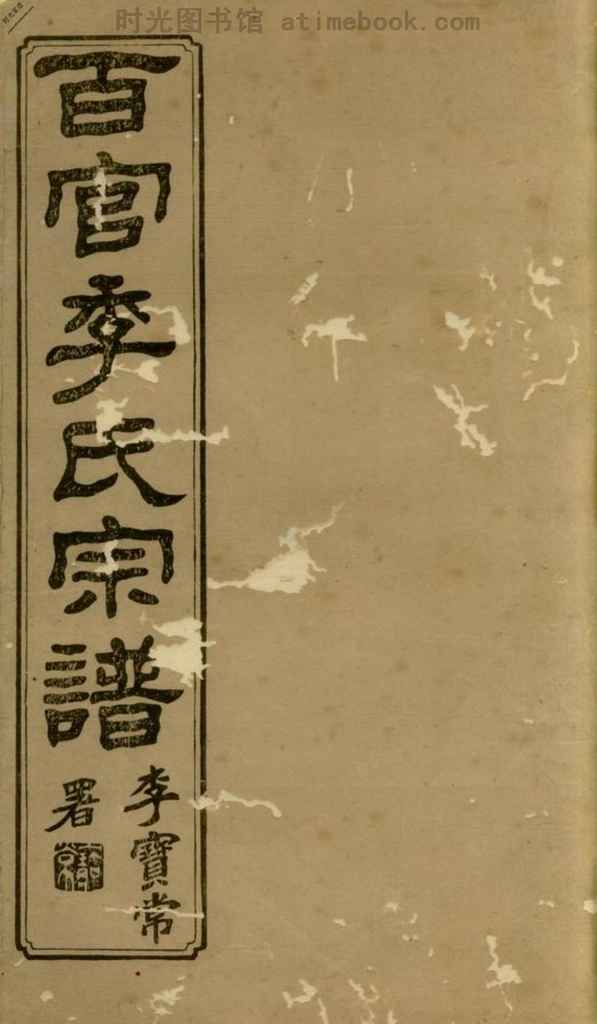 时光图书馆 atimebook.com
百官季氏宗譜
李寶常
署